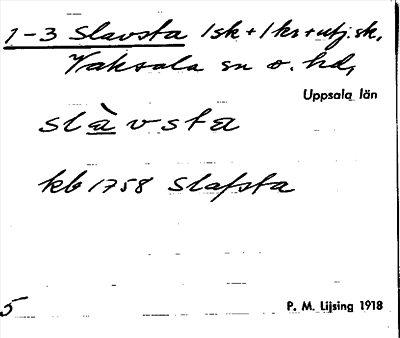 1-3 Slavsta 1 sk + 1 kr + utj. sk,
Vaksala sn o. hd,
Uppsala län
slàvsta
kb 1758 Slafsta
5
P. M. Lijsing 1918